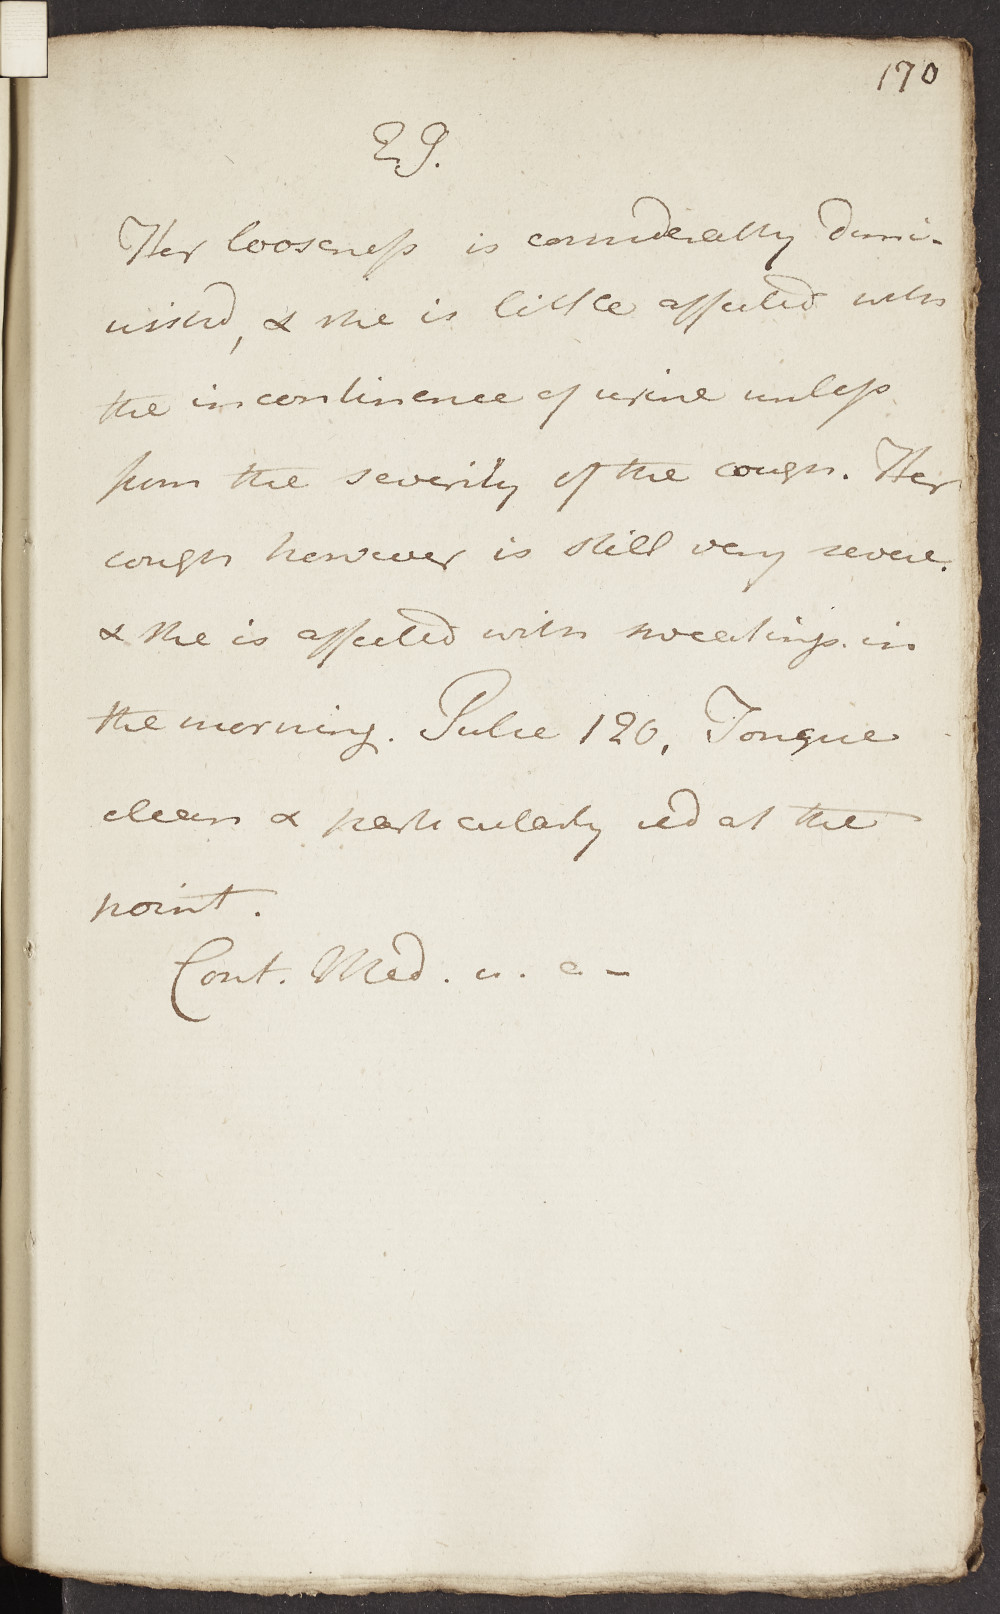 170
29.
Her looseness is considerably dimi-
nished, & she is little affected with
the incontinence of urine unless
from the severity of the cough. Her
cough however is still very severe.
& she is affected with sweatings in
the morning. Pulse 120, Tongue
clean & particularly red at the
point.
Cont. Med. u. a -